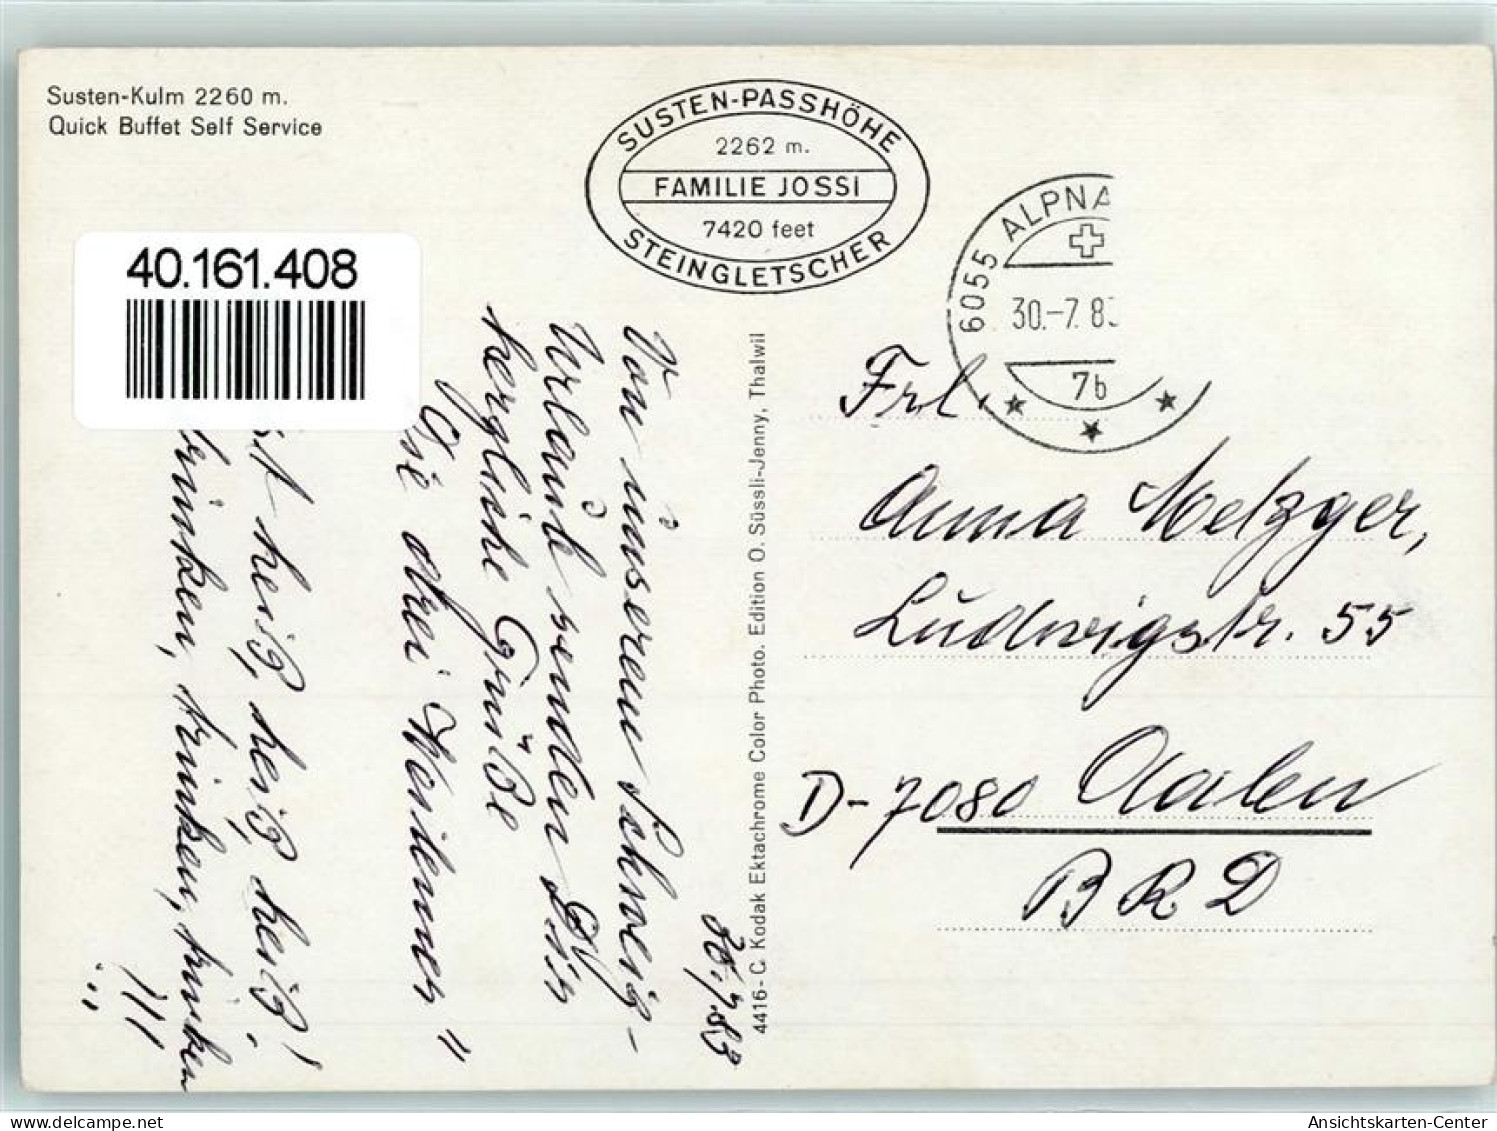 Susten-Kulm 2260 m.
Quick Buffet Self Service
SUSTEN-PASSHÖHE
2262 m.
FAMILIE JOSSI
7420 feet
STEINGLETSCHER
6055 ALPNA
30.-7.83
7b
40.161.408
30.7.83
Von unserem Schweiz-
Urlaub senden Dir
herzliche Grüße
drei
heiß, heiß, heiß!
trinken, trinken, trinken
!!!
4416-C. Kodak Ektachrome Color Photo. Edition O. Süssli-Jenny, Thalwil
Frl.
Anna Metzger,
Ludwigstr. 55
D-7080 Aalen
BRD
Ansichtskarten-Center